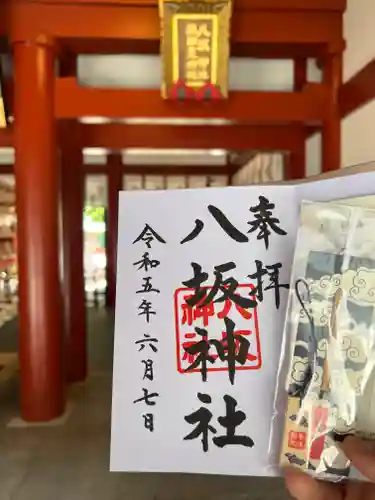 奉拝
八坂神社
八坂神社
令和五年六月七日
八坂神社